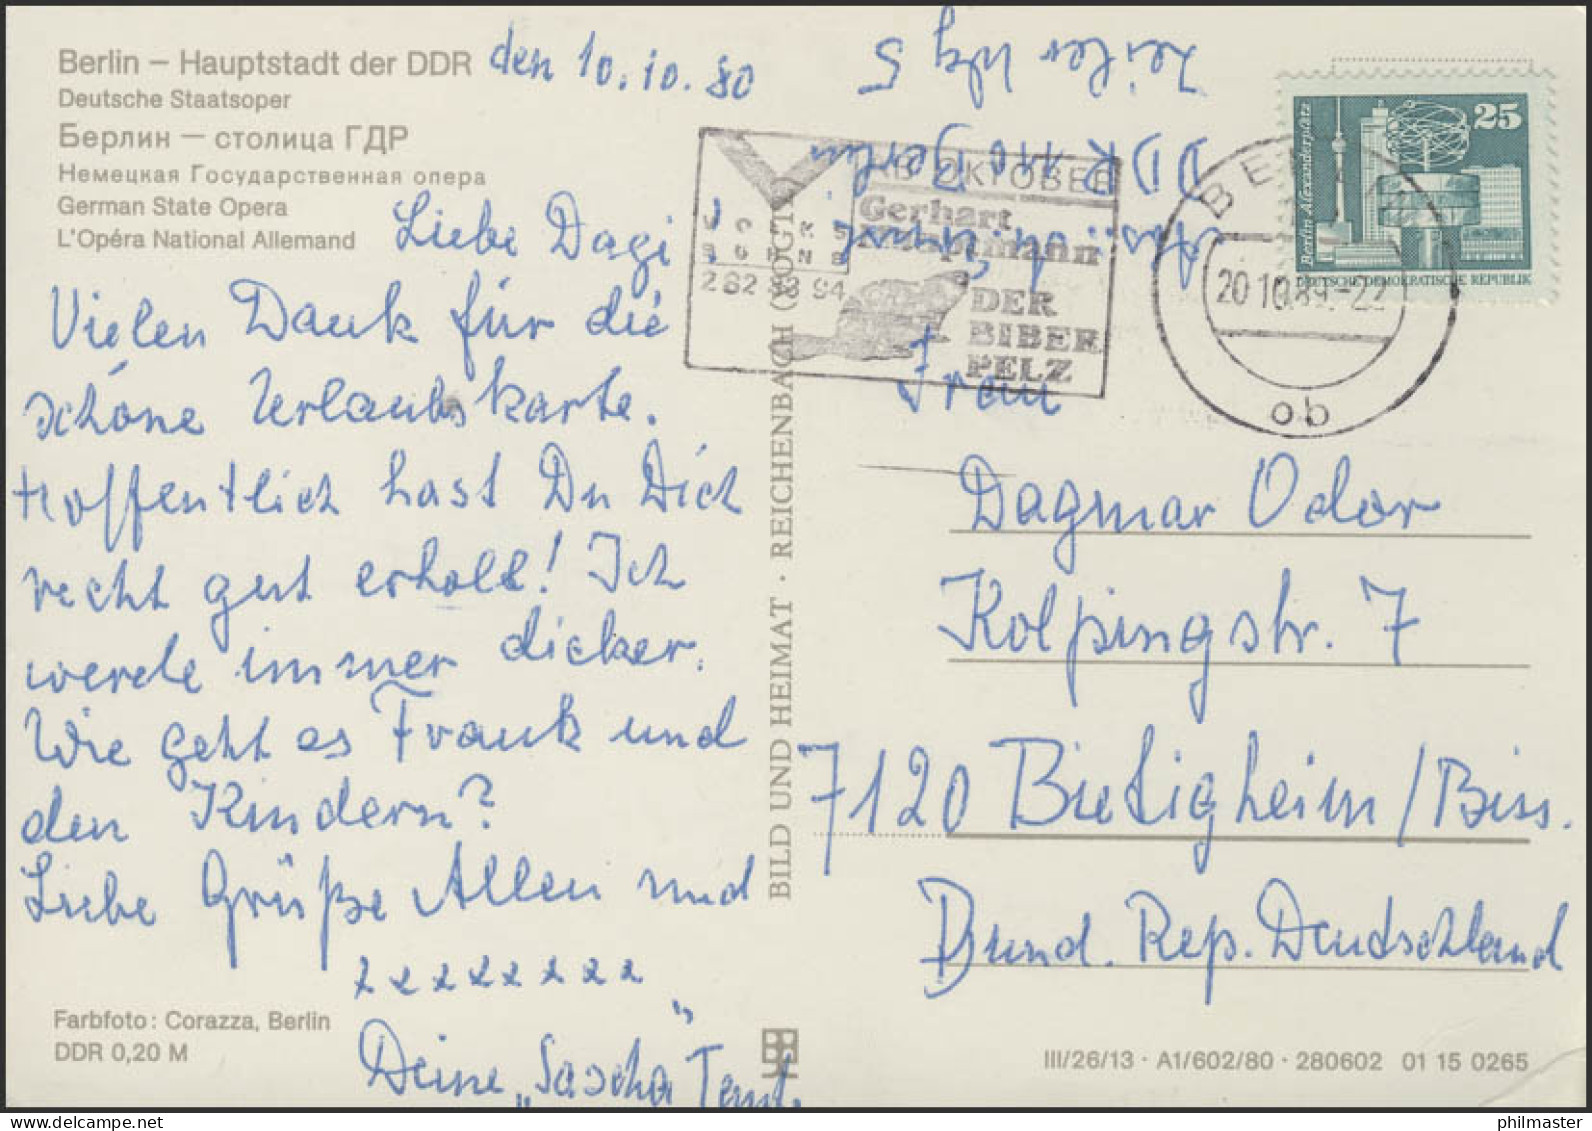 Berlin – Hauptstadt der DDR
den 10.10.80
Deutsche Staatsoper
Берлин — столица ГДР
Немецкая Государственная опера
German State Opera
L'Opéra National Allemand
Liebe Dagi!
Vielen Dank für die
schöne Urlaubskarte.
Hoffentlich hast Du Dich
recht gut erholt! Ich
werde immer dicker.
Wie geht es Frank und
den Kindern?
Liebe Grüße Allen und
Deine „Sascha"
Farbfoto: Corazza, Berlin
DDR 0,20 M
BILD UND HEIMAT · REICHENBACH (VOGTL
5
DDR Berlin
VOLKS
BÜHNE
2 82 94
OKTOBER
Gerhart
Hauptmann
DER
BIBER
PELZ
BERLIN
20.10
ob
25
Berlin Alexanderplatz
DEUTSCHE DEMOKRATISCHE REPUBLIK
Frau
Dagmar Odor
Kolpingstr. 7
7120 Bietigheim/Biss.
Bund. Rep. Deutschland
III/26/13 · A1/602/80 · 280602 01 15 0265
philmaster